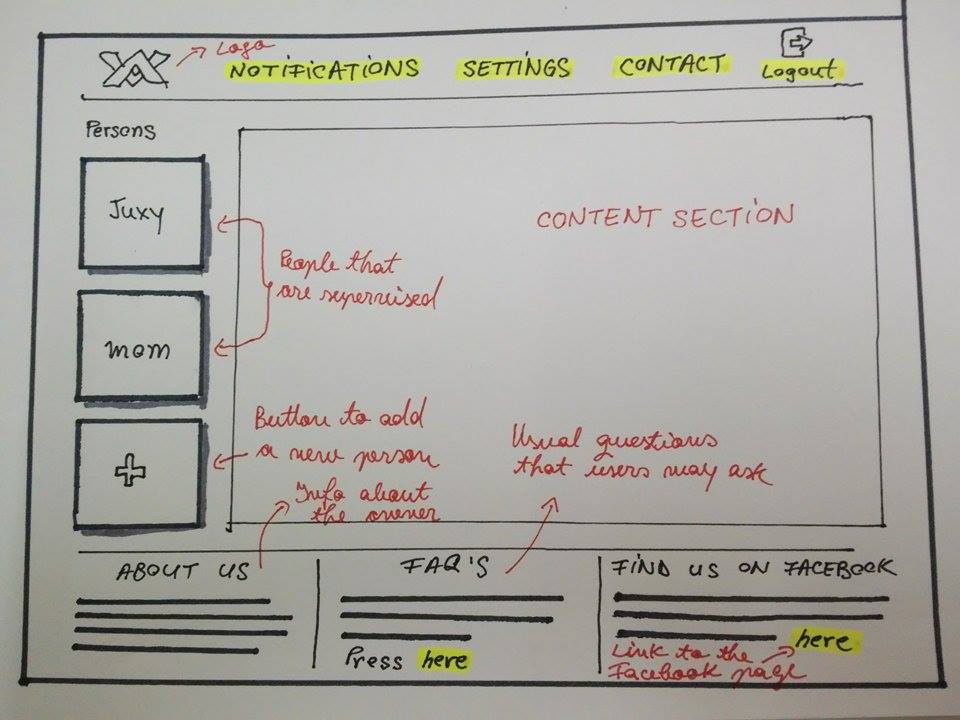 Logo
NOTIFICATIONS SETTINGS CONTACT Logout
Persons
Juxy
CONTENT SECTION
People that
are supervised
mom
Button to add
a new person
+
Usual questions
that users may ask
Info about
the owner
ABOUT US
FAQ'S
Press here
FIND US ON FACEBOOK
here
Link to the
Facebook page